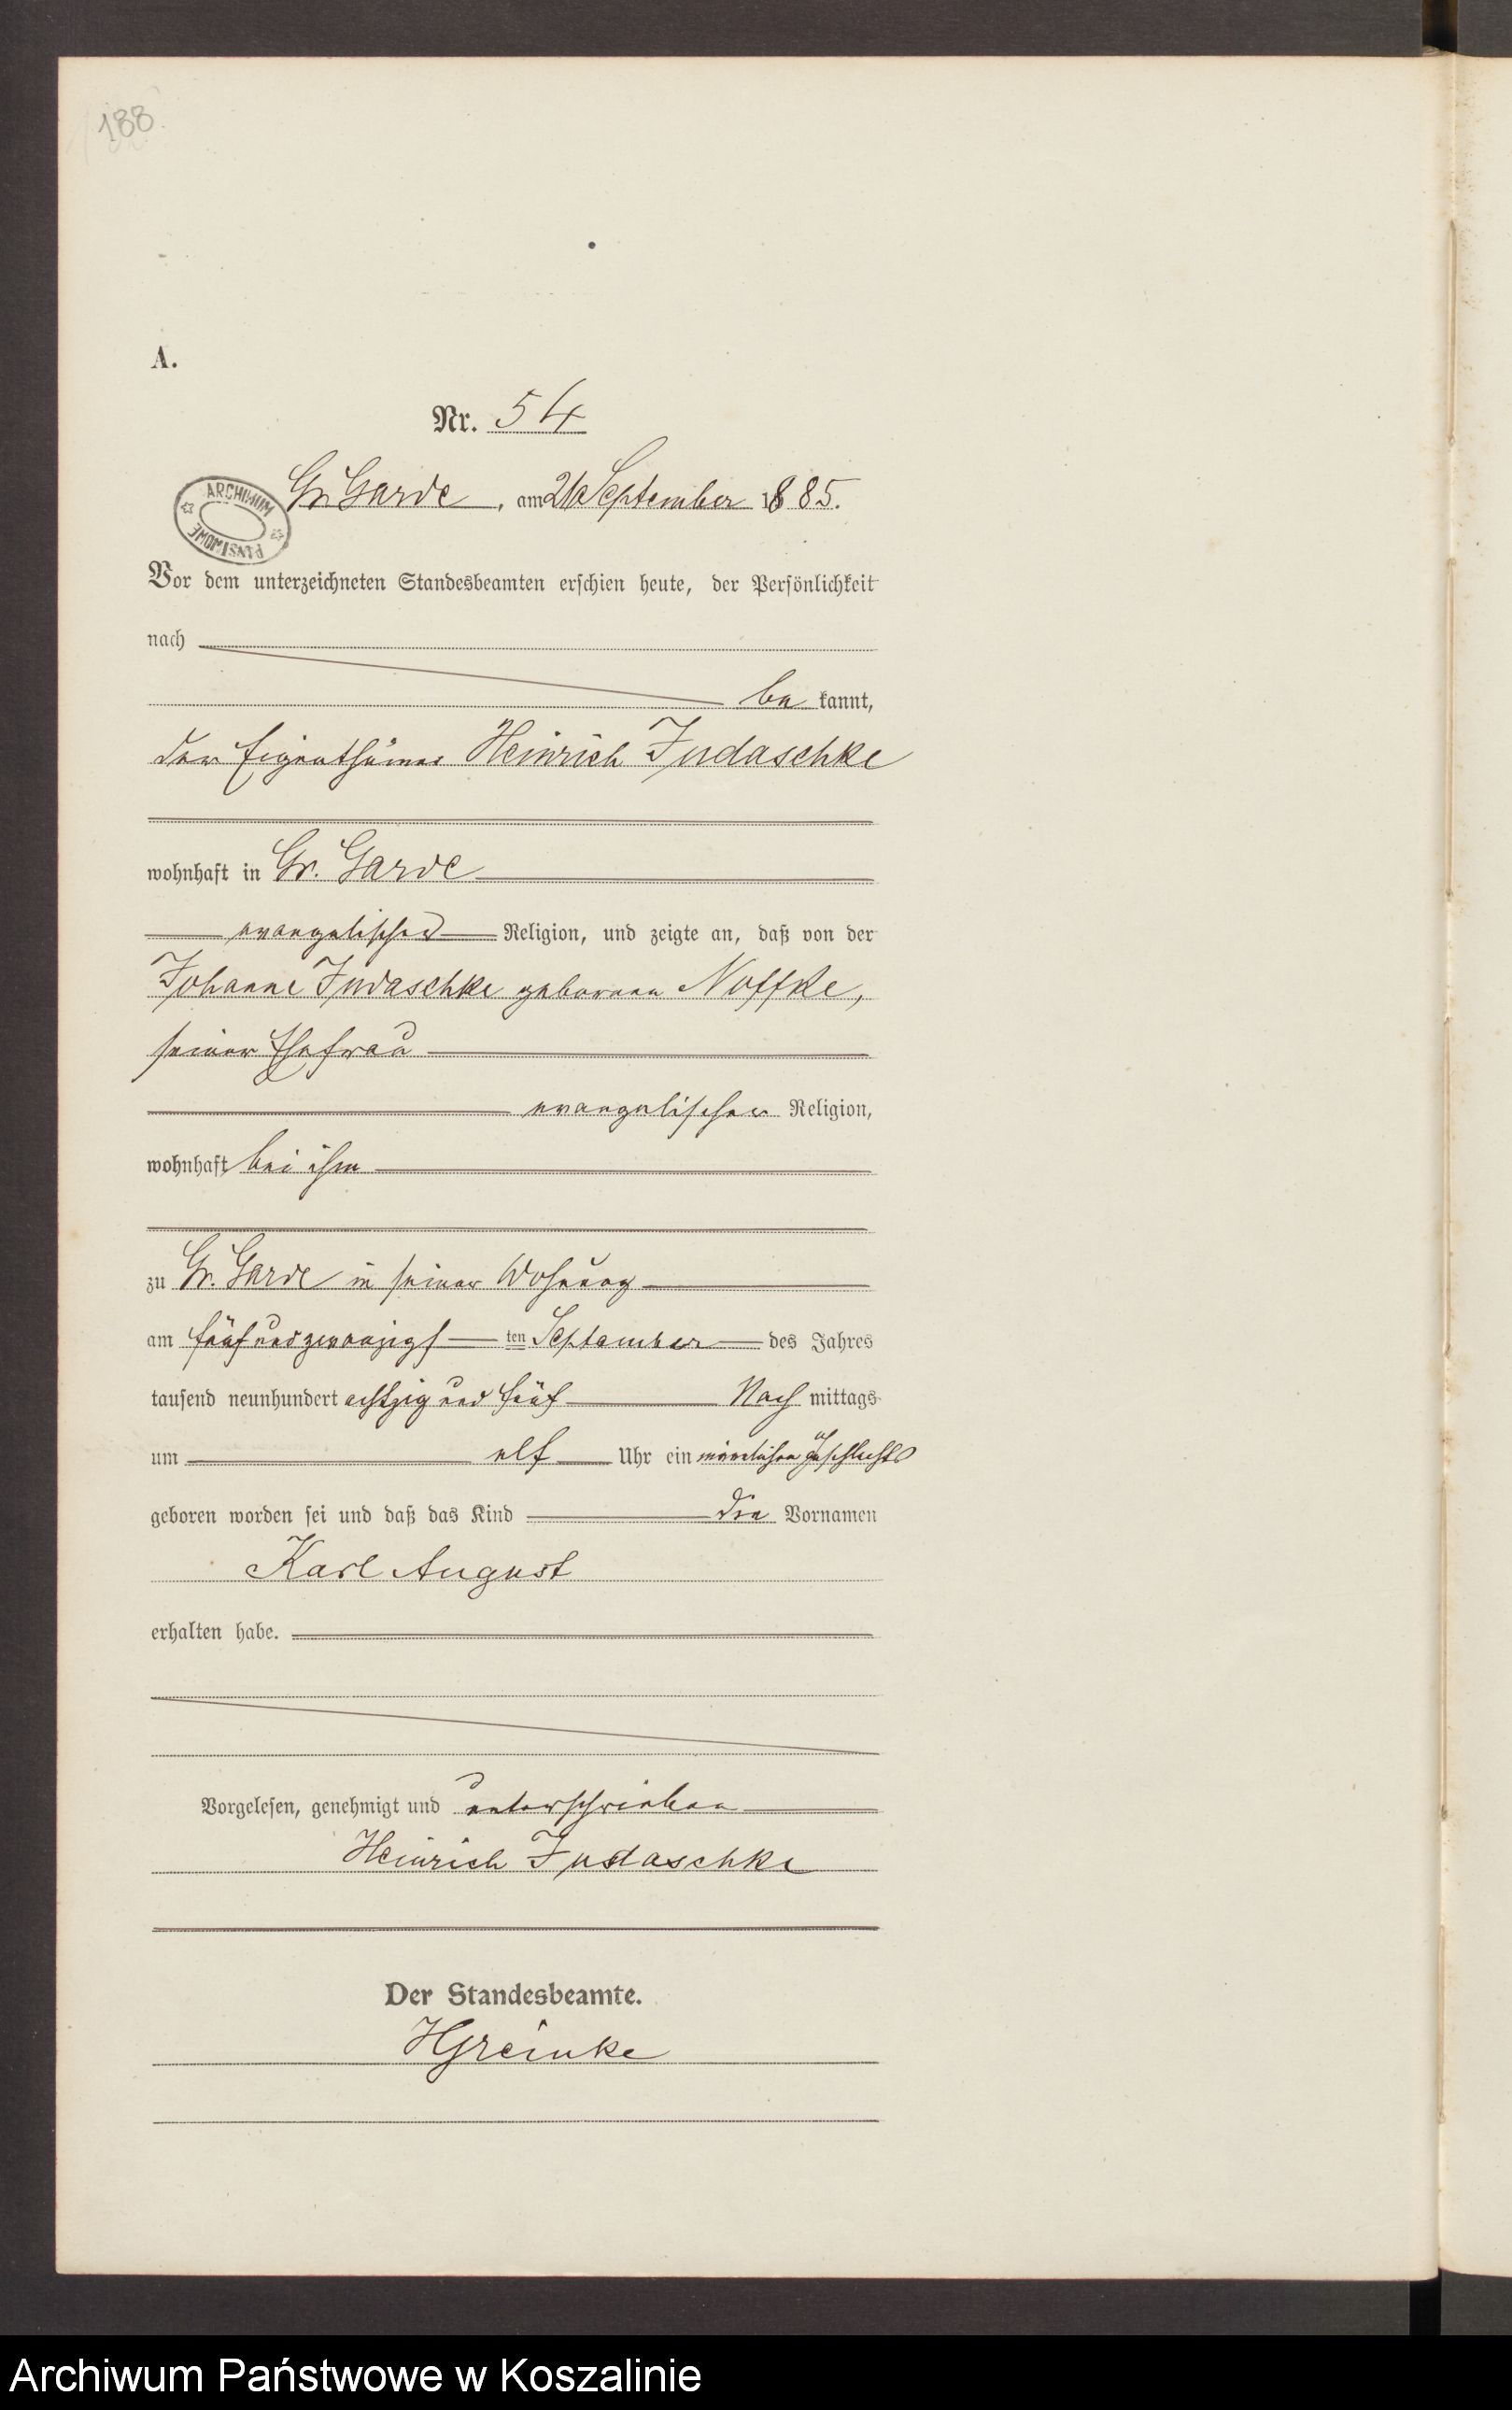 188
A.
Nr. 54
ARCHIWUM PAŃSTWOWE
Gr. Garde, am 26 September 1885.
Vor dem unterzeichneten Standesbeamten erschien heute, der Persönlichkeit
nach
be kannt,
der Eigenthümer Heinrich Judaschke
wohnhaft in Gr. Garde
evangelischer Religion, und zeigte an, daß von der
Johanne Judaschke geborenen Noffke,
seiner Ehefrau
evangelischer Religion,
wohnhaft bei ihm
zu Gr. Garde in seiner Wohnung
am fünfundzwanzigsten September des Jahres
tausend neunhundert achtzig und fünf Nach mittags
um elf Uhr ein männlichen Geschlechts
geboren worden sei und daß das Kind die Vornamen
Karl August
erhalten habe.
Vorgelesen, genehmigt und unterschrieben
Heinrich Judaschke
Der Standesbeamte.
HGreinke
Archiwum Państwowe w Koszalinie